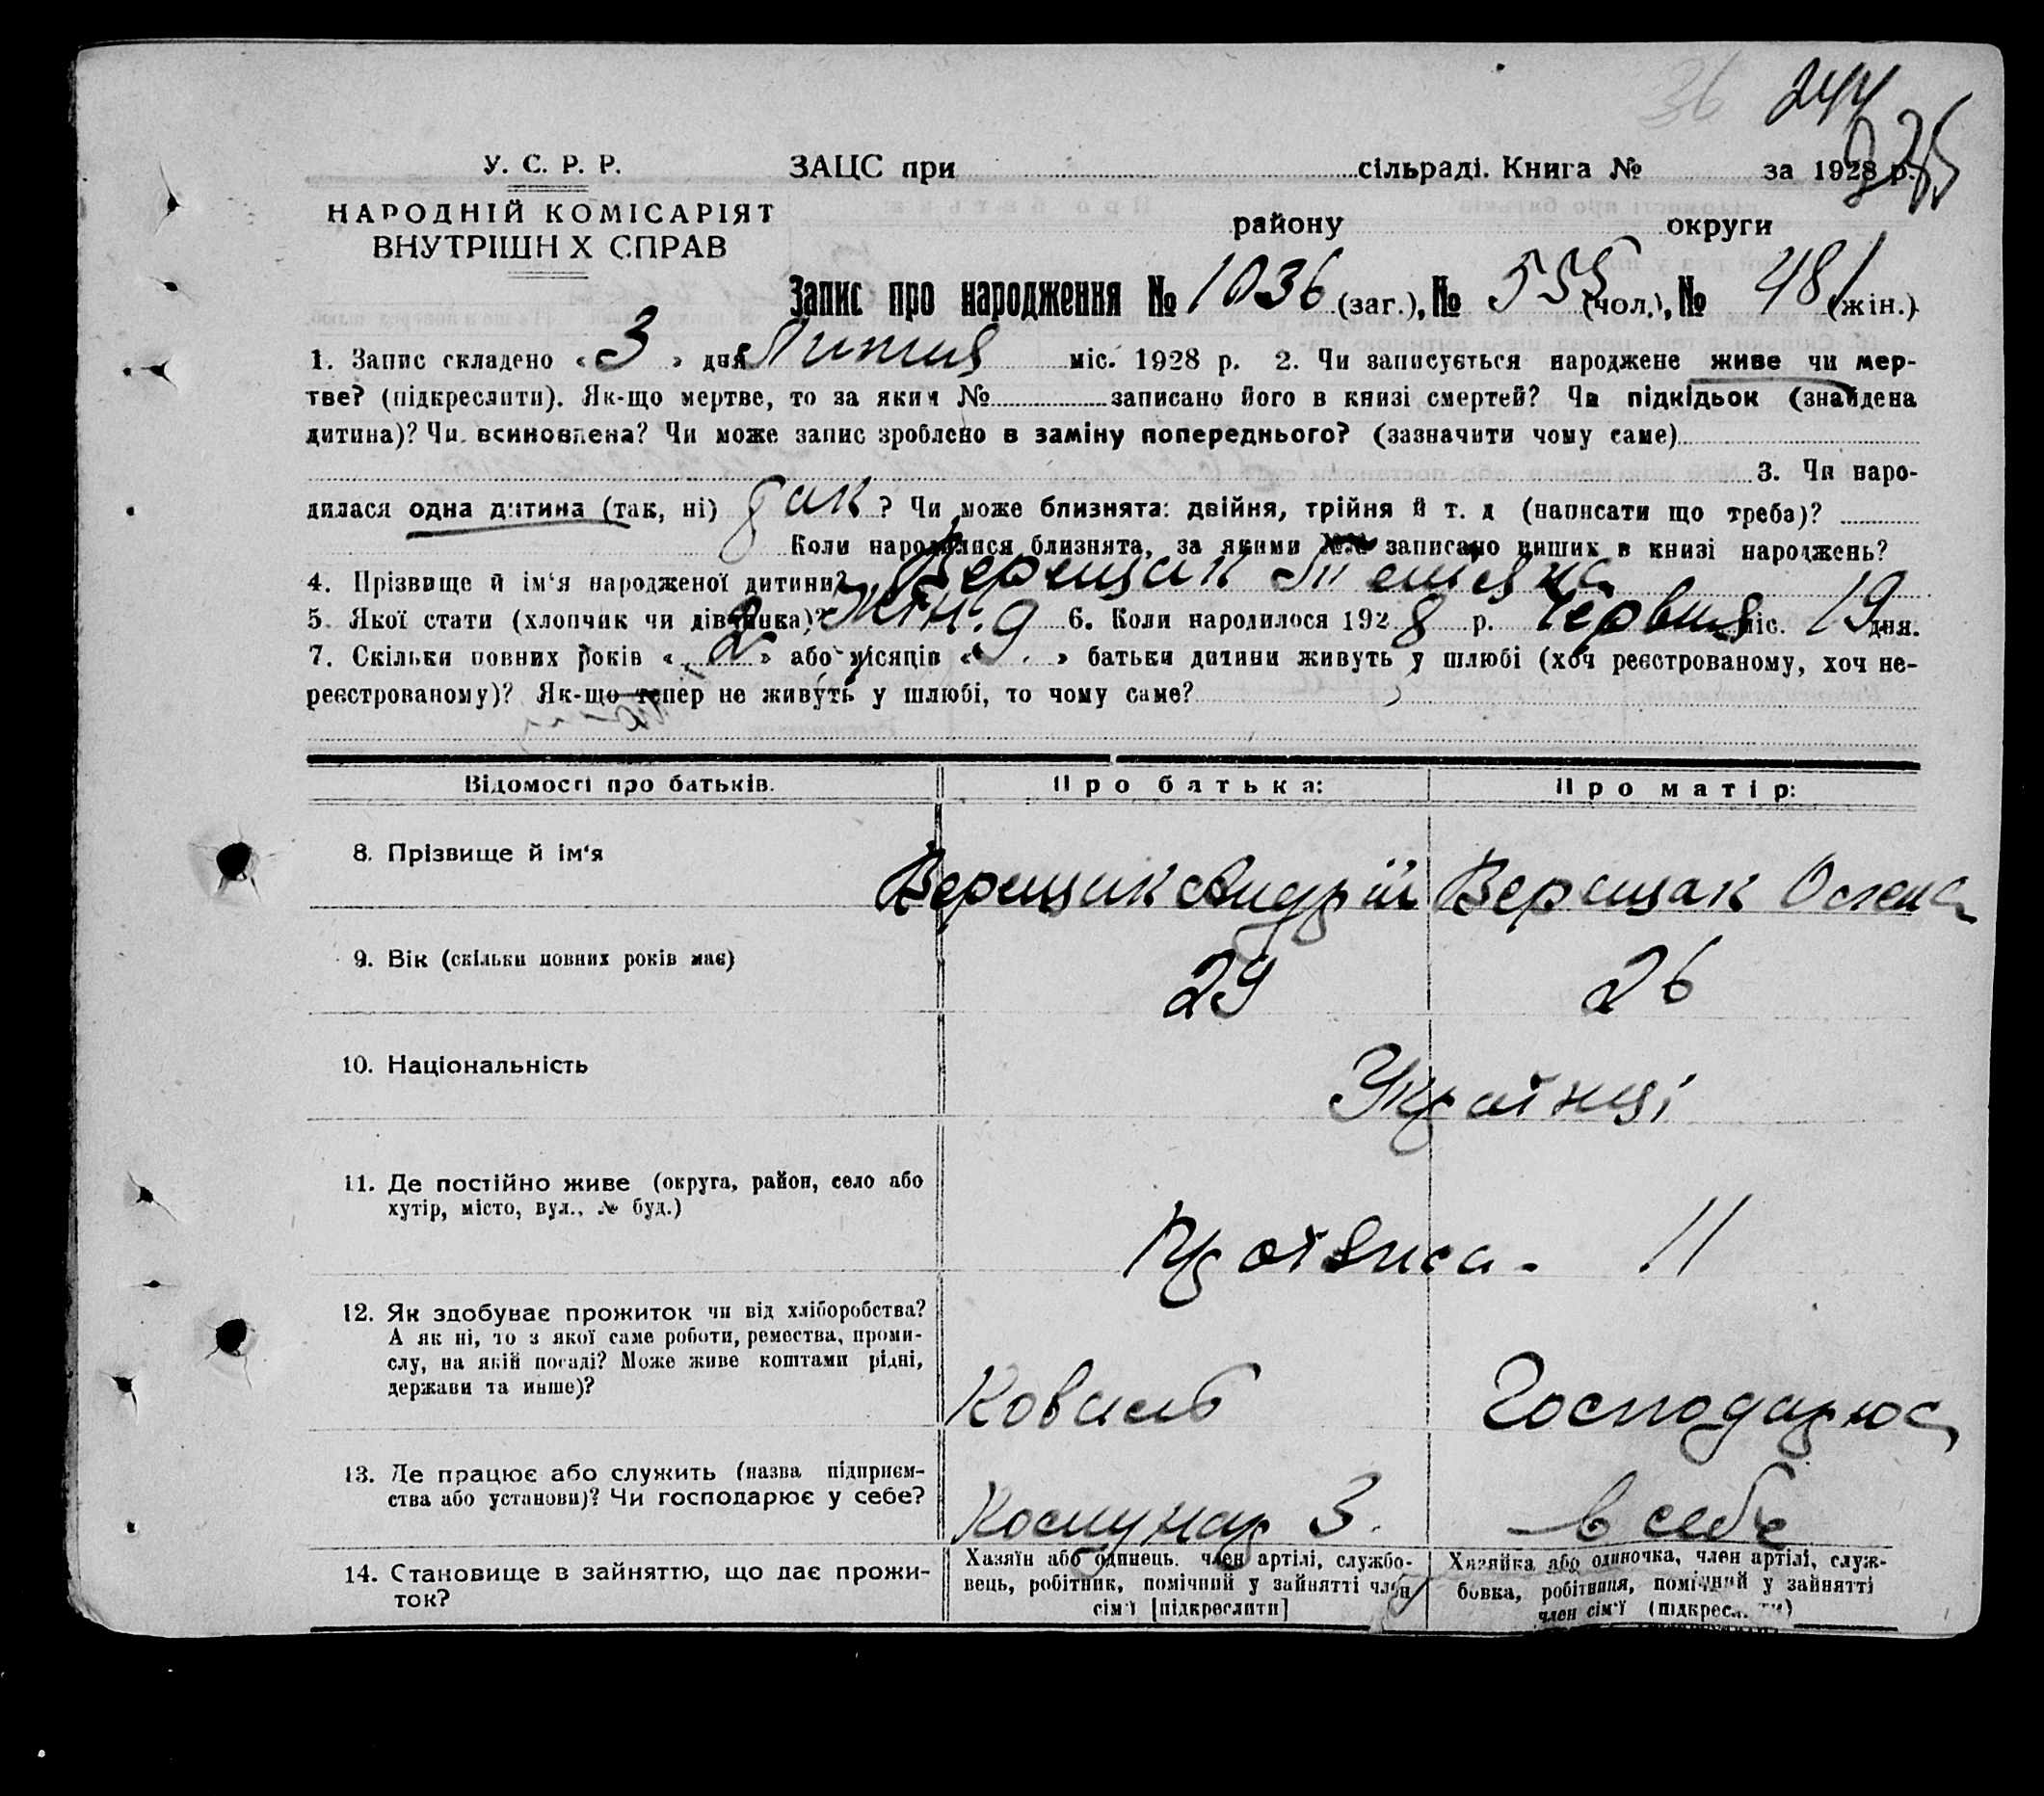 36 244
235
У. С. Р. Р. ЗАЦС при сільраді. Книга № за 1928 р.
НАРОДНІЙ КОМІСАРІЯТ району округи
ВНУТРІШН Х СПРАВ
Запис про народження № 1036 (заг.), № 555 (чол.), № 481 (жін.)
1. Запис складено « 3 » дня Липня міс. 1928 р. 2. Чи записується народжене живе чи мер-
тве? (підкреслити). Як-що мертве, то за яким № записано його в книзі смертей? Чи підкідьок (знайдена
дитина)? Чи всиновлена? Чи може запис зроблено в заміну попереднього? (зазначити чому саме)
3. Чи наро-
дилася одна дитина (так, ні) так ? Чи може близнята: двійня, трійня й т. д (написати що треба)?
Коли народилися близнята, за якими №№ записано инших в книзі народжень?
4. Прізвище й ім‘я народженої дитини? Верещак
5. Якої стати (хлопчик чи дівчинка)? Жін. 6. Коли народилося 1928 р. Червня міс. 19 дня.
7. Скільки повних років « 2 » або місяців « 9 » батьки дитини живуть у шлюбі (хоч реєстрованому, хоч не-
реєстрованому)? Як-що тепер не живуть у шлюбі, то чому саме?
Відомості про батьків. Про батька: Про матір:
8. Прізвище й ім‘я Верещак Андрій Верещак Олена
9. Вік (скільки повних років має) 29 26
10. Національність Українці
11. Де постійно живе (округа, район, село або
хутір, місто, вул., № буд.) 11
12. Як здобуває прожиток чи від хліборобства?
А як ні, то з якої саме роботи, ремества, проми-
слу, на якій посаді? Може живе коштами рідні,
держави та инше)? Коваль Господарює
13. Де працює або служить (назва підприєм-
ства або установи)? Чи господарює у себе? Комунар З. в себе
14. Становище в зайняттю, що дає прожи-
ток?
Хазяїн або одинець. член артілі, службо-
вець, робітник, помічний у зайнятті член
сім‘ї [підкреслити]
Хазяйка або одиночка, член артілі, служ-
бовка, робітниця, помічний у зайнятті
член сім‘ї (підкреслити)